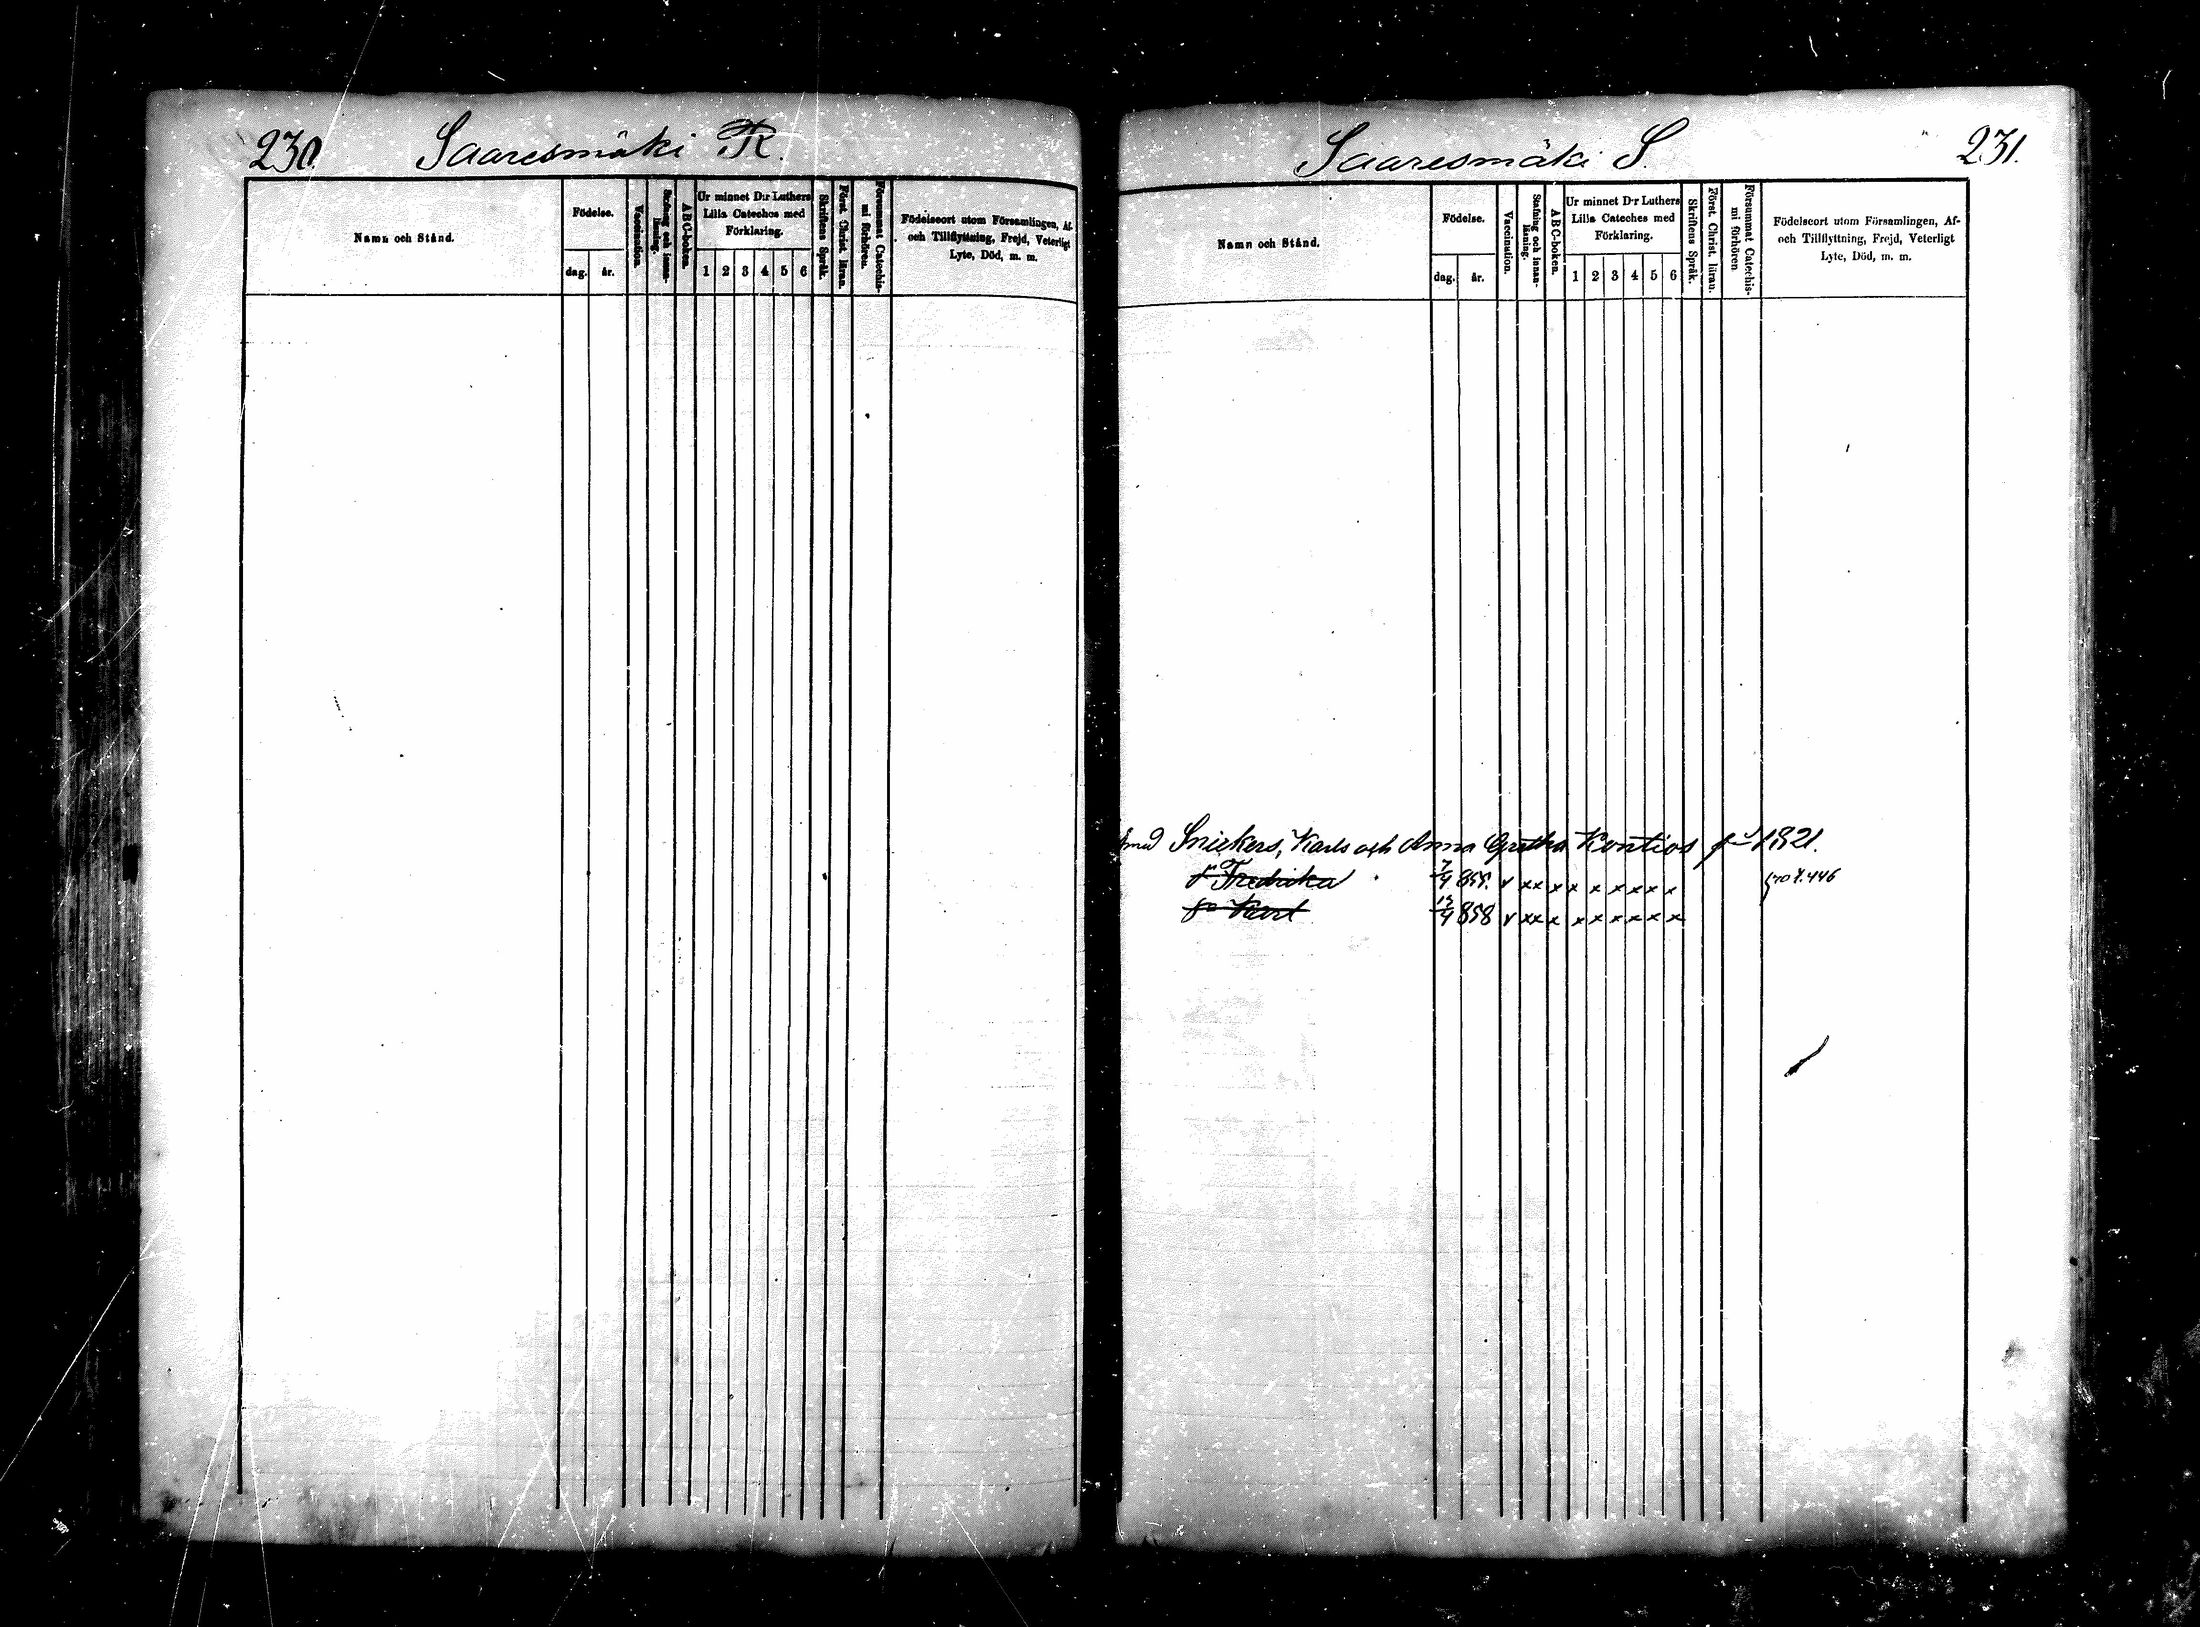 230. Saaresmäki R.
Namn och Stånd.
Födelse.
dag. år.
Vaccination.
Stafning och innan-
läsning.
ABC-boken.
Ur minnet D:r Luthers
Lilla Cateches med
Förklaring.
1 2 3 4 5 6
Skriftens Språk.
Först. Christ. läran.
Försummat Catechis-
mi förhören.
Födelseort utom Församlingen, Af-
och Tillflyttning, Frejd, Veterligt
Lyte, Död, m. m.
Saaresmäki S. 231.
Namn och Stånd.
Födelse.
dag. år.
Vaccination.
Stafning och innan-
läsning.
ABC-boken.
Ur minnet D:r Luthers
Lilla Cateches med
Förklaring.
1 2 3 4 5 6
Skriftens Språk.
Först. Christ. läran.
Försummat Catechis-
mi förhören
Födelseort utom Församlingen, Af-
och Tillflyttning, Frejd, Veterligt
Lyte, Död, m. m.
Snickers, Karls och Anna Gretha Kontios 1821.
Fredrika 7/4 855. v xx x x x x x x x 70 p. 446
Karl 13/4 858 v xx x x x x x x x